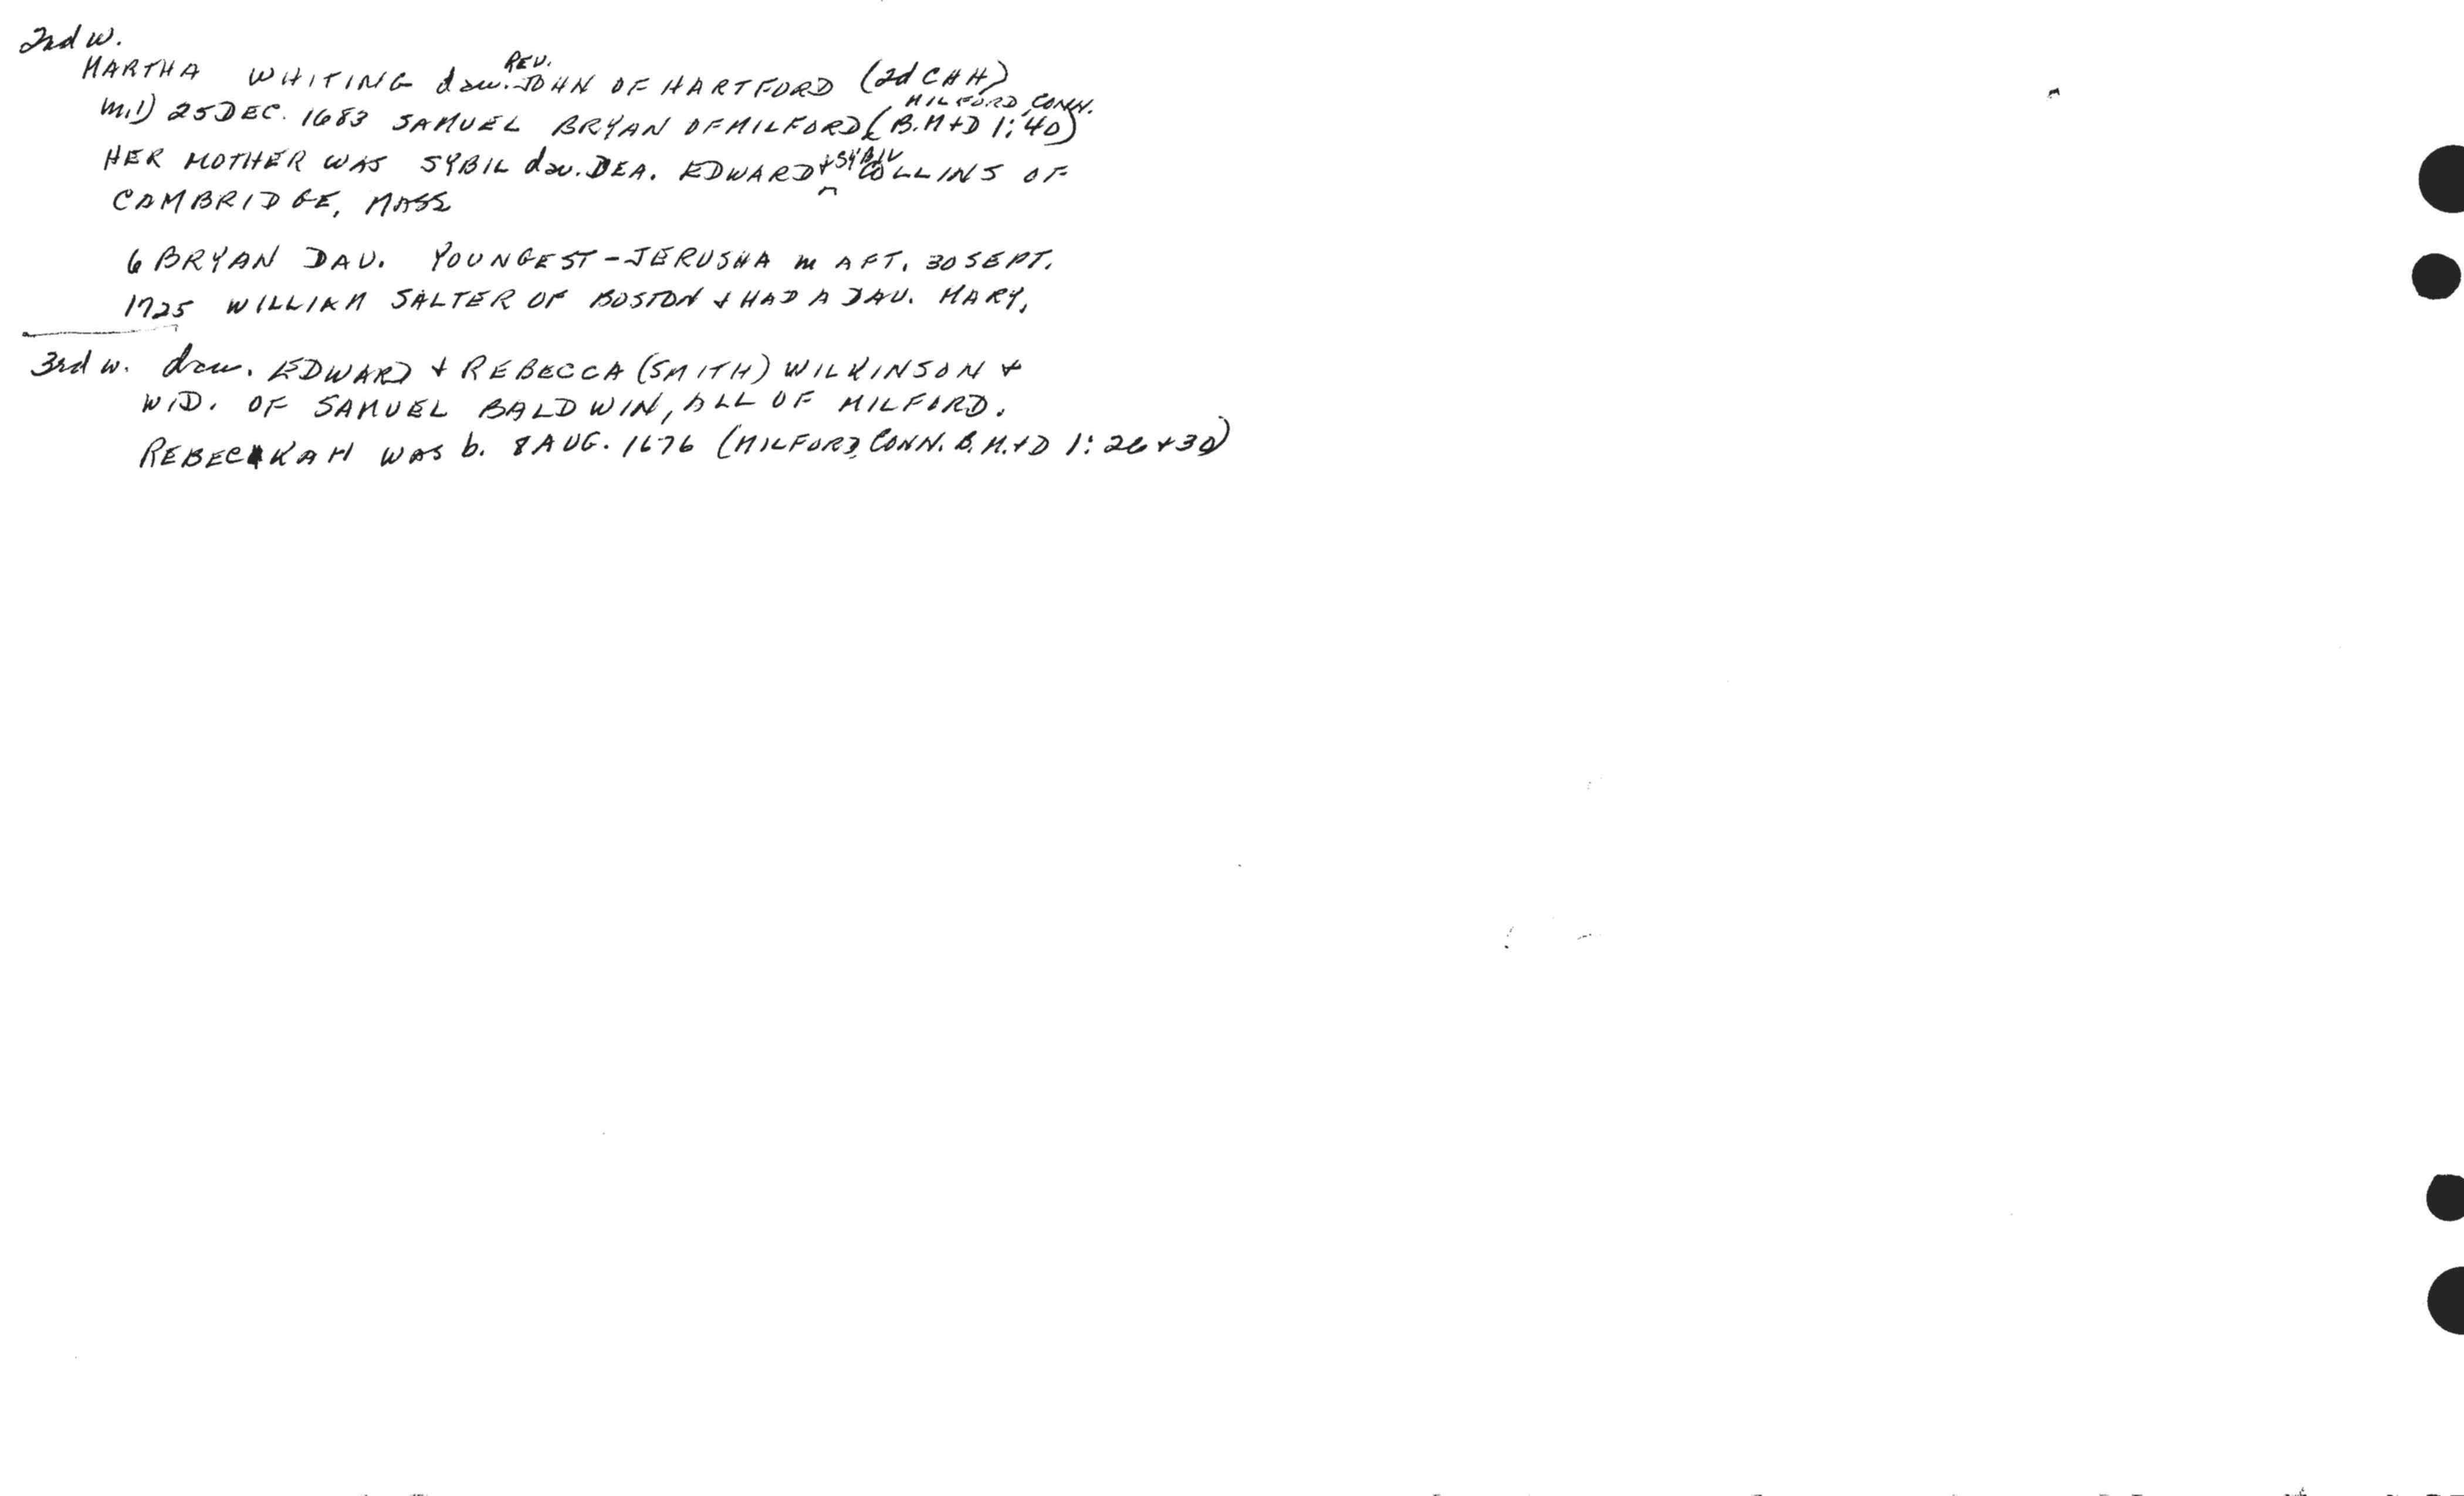 2nd w.
MARTHA WHITING dau. REV. JOHN OF HARTFORD (2d CHH)
m.1) 25 DEC. 1683 SAMUEL BRYAN OF MILFORD (MILFORD, CONN. B.M+D 1:40)
HER MOTHER WAS SYBIL dau. DEA. EDWARD + SYBIL COLLINS OF
CAMBRIDGE, MASS
6 BRYAN DAU. YOUNGEST - JERUSHA m AFT. 30 SEPT.
1725 WILLIAM SALTER OF BOSTON + HAD A DAU. MARY.
3rd w. dau. EDWARD + REBECCA (SMITH) WILKINSON +
WID. OF SAMUEL BALDWIN, ALL OF MILFORD.
REBECKAH WAS b. 8 AUG. 1676 (MILFORD, CONN. B.M.+D 1:26+30)